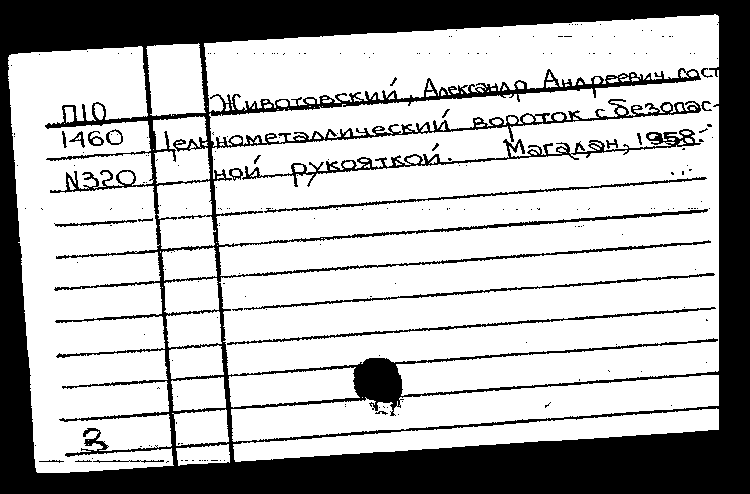 П10 Животовский, Александр Андреевич сост
1460 Цельнометаллический вороток с безопас-
N320 ной рукояткой. Магадан, 1958.-
...
3